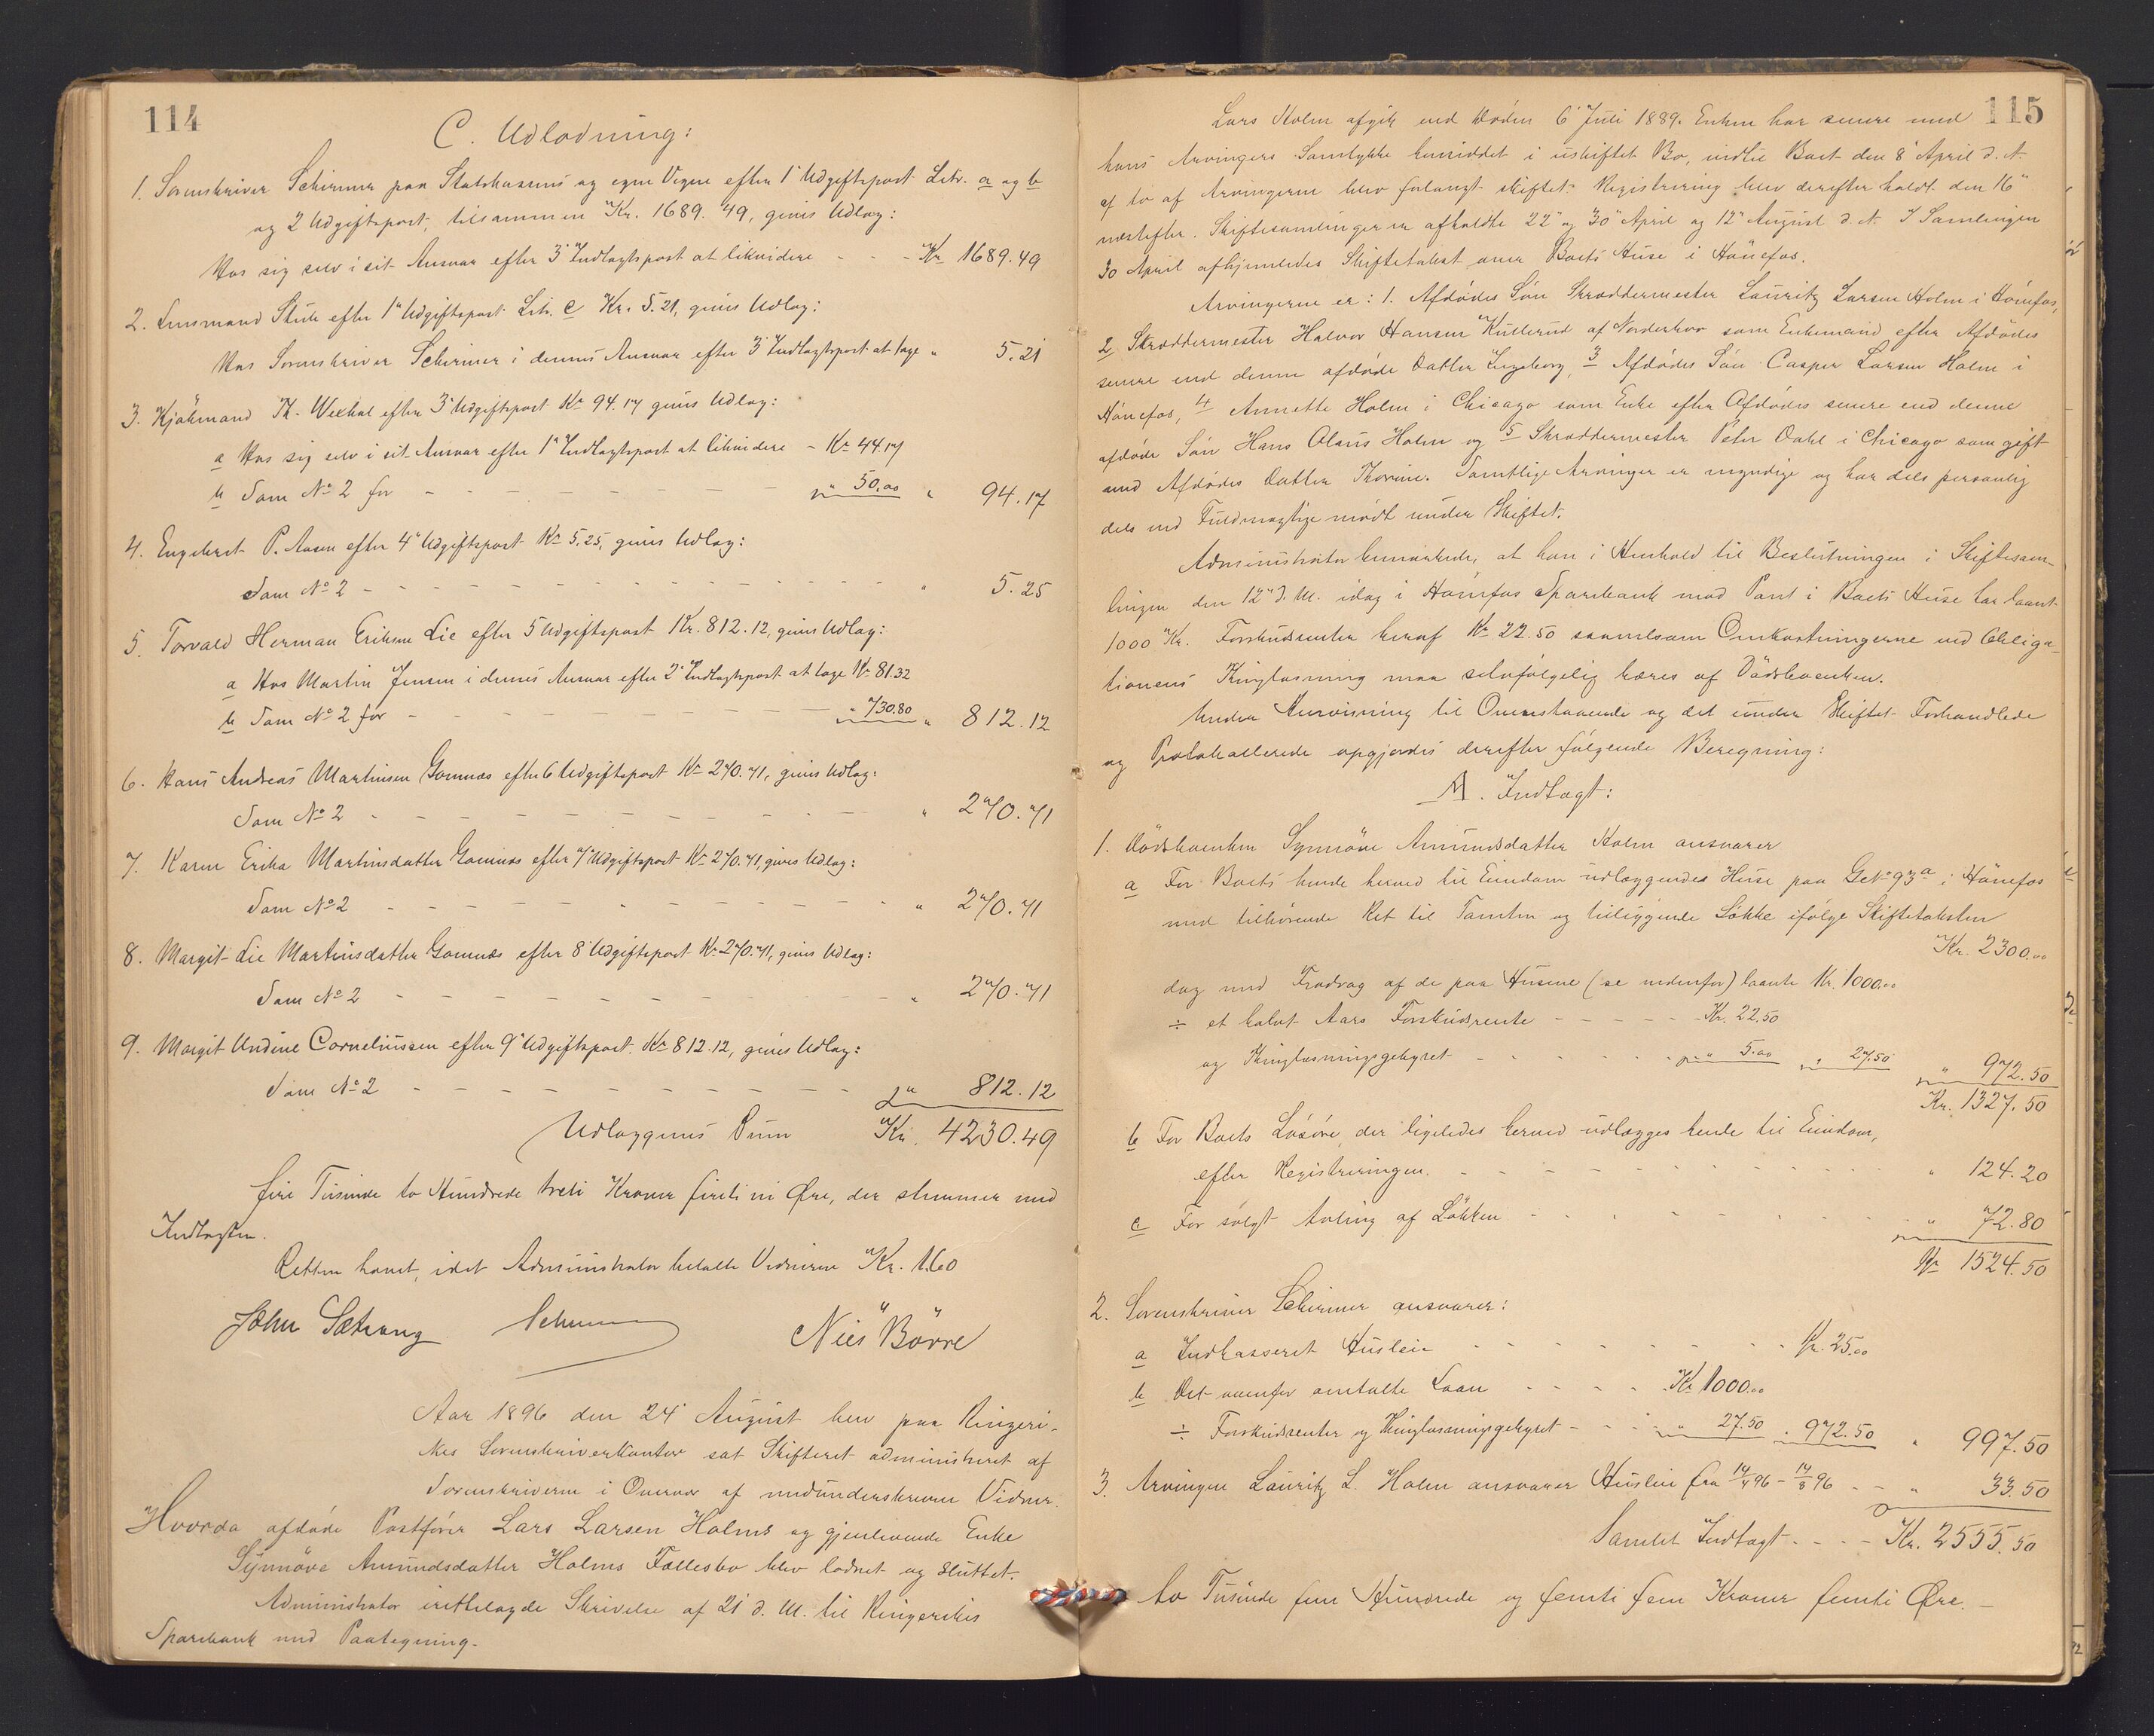 114
C. Udlodning:
1. Sorenskriver Schirmer paa Statskassens og egne Vegne efter 1' Udgiftspost Litr. a og b
og 2 Udgiftspost, tilsammen Kr. 1689.49, gives Udlæg:
Hos sig selv i sit Ansvar efter 3' Indtægtspost at likvidere - - - Kr 1689.49
2. Lensmand efter 1' Udgiftspost Litr. c Kr. 5.21, gives Udlæg:
Hos Sorenskriver Schirmer i dennes Ansvar efter 3' Indtægtspost at tage " 5.21
3. Kjøbmand Th. Wexhal efter 3' Udgiftspost Kr 94.17 gives Udlæg:
a Hos sig selv i sit Ansvar efter 1' Indtægtspost at likvidere - Kr 44.17
b Som No 2 for - - - - - " 50.00 " 94.17
4. Engebret P. Aasen efter 4' Udgiftspost Kr 5.25, gives Udlæg:
Som No 2 - - - - - - " 5.25
5. Torvald Herman Eriksen Lie efter 5 Udgiftspost Kr. 812.12, gives Udlæg:
a Hos Martin Jensen i dennes Ansvar efter 2' Indtægtspost at tage Kr 81.32
b Som No 2 for - - - - - " 730.80 " 812.12
6. Hans Andreas Martinsen Gomnæs efter 6 Udgiftspost Kr 270.71, gives Udlæg:
Som No 2 - - - - - - " 270.71
7. Karen Erika Martinsdatter Gomnæs efter 7' Udgiftspost Kr 270.71, gives Udlæg:
Som No 2 - - - - - - " 270.71
8. Margit Lie Martinsdatter Gomnæs efter 8' Udgiftspost Kr 270.71, gives Udlæg:
Som No 2 - - - - - - " 270.71
9. Margit Undine Corneliussen efter 9' Udgiftspost Kr 812.12, gives Udlæg:
Som No 2 - - - - - - " 812.12
Udlæggenes Sum Kr. 4230.49
fire Tusinde to Hundrede treti Kroner firti ni Øre, der stemmer med
Indtægten.
Retten hævet, idet Administrator betalte Vidnerne Kr. 1.60
John Sætrang Schirmer Niels Börre
Aar 1896 den 24' August blev paa Ringeri-
kes Sorenskriverkontor sat Skifteret administreret af
Sorenskriveren i Overvær af medunderskrevne Vidner.
Hvorda afdøde Postfører Lars Larsen Holms og gjenlevende Enke
Synnøve Amundsdatter Holms Fællesbo blev lodnet og sluttet.
Administrator irettelagde Skrivelse af 21 d. M. til Ringerikes
Sparebank med Paategning.
115
Lars Holm afgik ved Døden 6' Juli 1889. Enken har senere med
hans Arvingers Samtykke henseddet i uskiftet Bo, indtil Boet den 8' April d. A.
af to af Arvingerne blev forlangt skiftet. Registrering blev derefter holdt den 16'
næstefter. Skiftesamlinger er afholdte 22' og 30' April og 12' August d. A. I Samlingen
30 April afhjemledes Skiftetakst over Boets Huse i Hønefos.
Arvingerne er: 1. Afdødes Søn Skræddermester Lauritz Larsen Holm i Hønefos,
2 Skræddermester Halvor Hansen Kullerud af Norderhov som Enkemand efter Afdødes
senere end denne afdøde Datter Ingeborg, 3 Afdødes Søn Casper Larsen Holm i
Hønefos, 4 Annette Holm i Chicago som Enke efter Afdødes senere end denne
afdøde Søn Hans Olaus Holm og 5 Skræddermester Peter Dahl i Chicago som gift
med Afdødes Datter Thorine. Samtlige Arvinger er myndige og har dels personlig
dels ved Fuldmægtige mødt under Skiftet.
Administrator bemærkede, at han i Henhold til Beslutningen i Skiftesam-
lingen den 12' d. M. idag i Hønefos Sparebank mod Pant i Boets Huse har laant
1000 Kr. Forskudsrenter heraf Kr 22.50 saavelsom Omkostningerne ved Obliga-
tionens Thinglæsning maa selvfølgelig bæres af Dødsboenken.
Under Henvisning til Ovenstaaende og det under Skiftet Forhandlede
og Protokollerede opgjordes derefter følgende Beregning:
A. Indtægt:
1. Dødsboenken Synnøve Amundsdatter Holm ansvarer
a For Boets hende herved til Eiendom udlæggendes Huse paa Gt No 93a i Hønefos
med tilhørende Ret til Tomten og tilliggende Løkke ifølge Skiftetaksten
Kr. 2300.00
dog med Fradrag af de paa Husene (se nedenfor) laante Kr. 1000.00
÷ et halvt Aars Forskudsrente - - - - - Kr. 22.50
og Thinglæsningsgebyret - - - - - " 5.00 " 27.50 " 972.50
Kr. 1327.50
b For Boets Løsøre, der ligeledes herved udlægges hende til Eiendom,
efter Registreringen. - - - - - " 124.20
c For solgt Avling af Løkken - - - - - " 72.80
Kr 1524.50
2. Sorenskriver Schirmer ansvarer:
a Indkasseret Husleie - - - - - Kr. 25.00
b Det ovenfor omtalte Laan - - - - Kr 1000.00
÷ Forskudsrenter og Thinglæsningsgebyret - - - " 27.50 " 972.50 " 997.50
3. Arvingen Lauritz L. Holm ansvarer Husleie fra 14/4 96 - 14/8 96 - - " 33.50
Samlet Indtægt - - - Kr. 2555.50
to Tusinde fem Hundrede og femti fem Kroner femti Øre. -